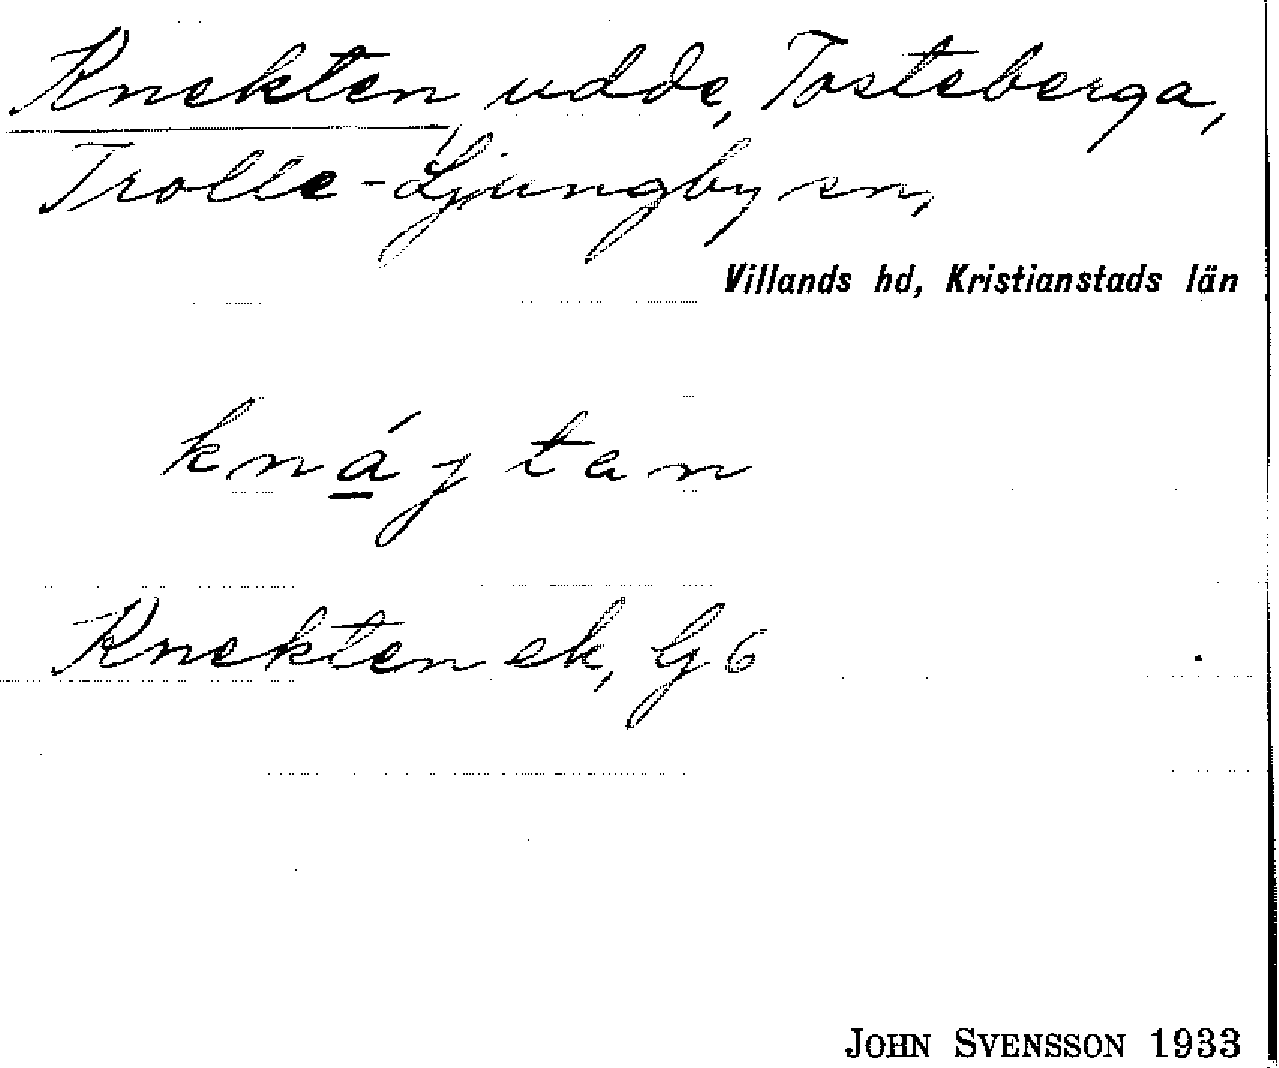 Knekten udde, Tosteberga,
Trolle-Ljungby sn,
Villands hd, Kristianstads län
knágtan
Knekten ek, G6
JOHN SVENSSON 1933